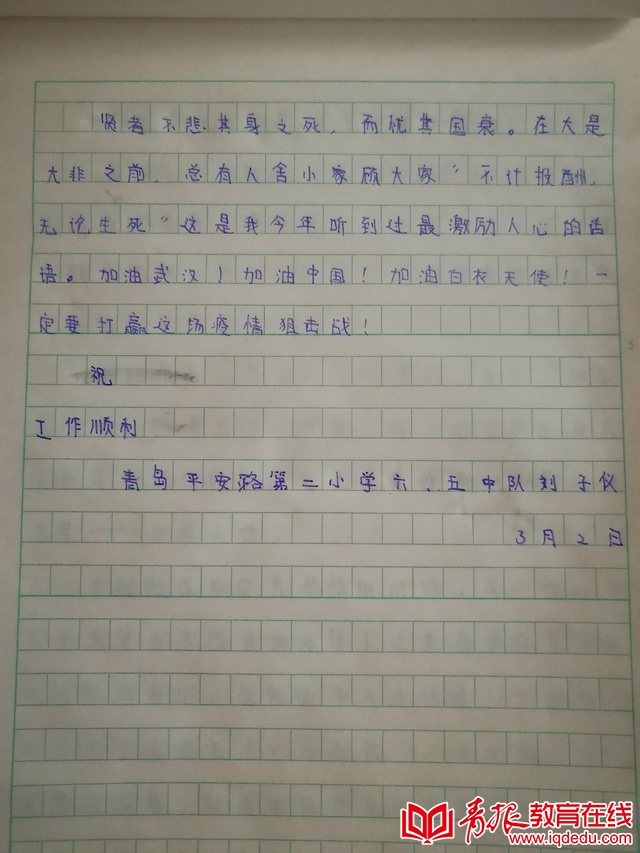 贤者不悲其身之死，而忧其国衰。在大是
大非之前，总有人舍小家顾大家"不计报酬，
无论生死"这是我今年听到过最激励人心的话
语。加油武汉！加油中国！加油白衣天使！一
定要打赢这场疫情狙击战！
祝
工作顺利
青岛平安路第二小学六、五中队刘子仪
3月2日
青报教育在线
www.iqdedu.com